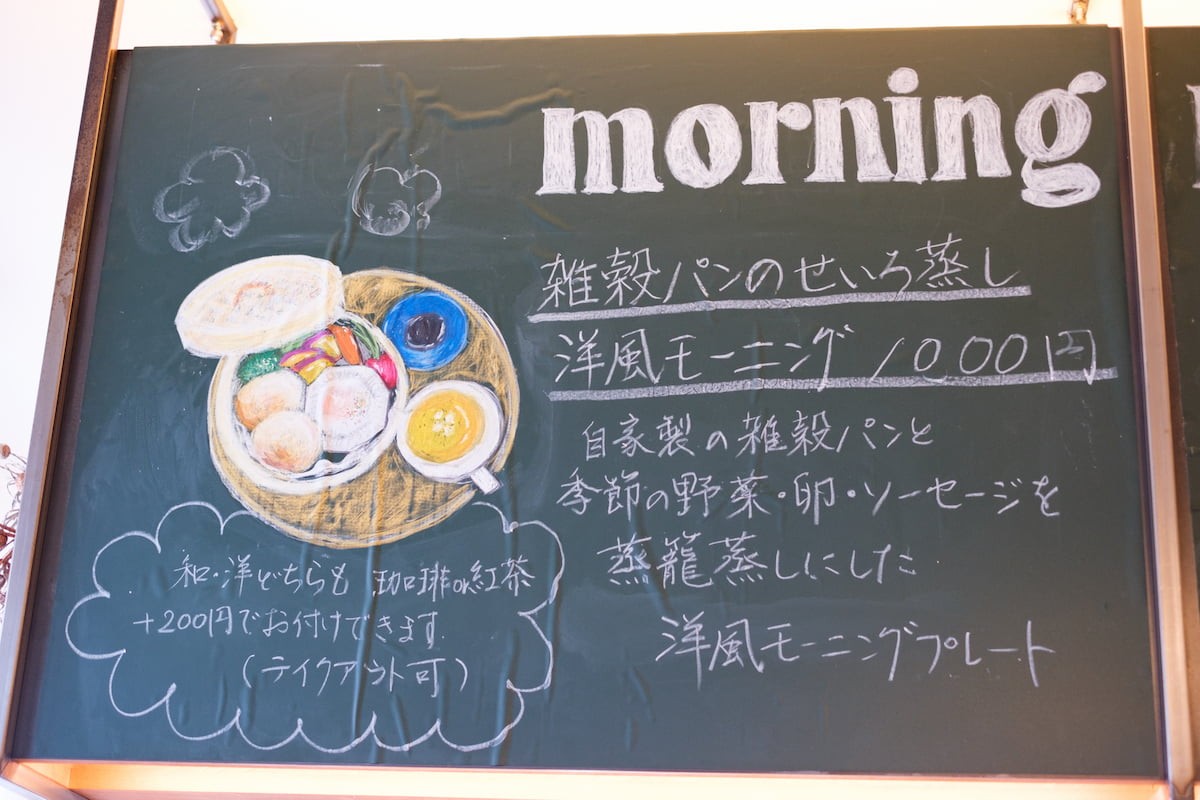 morning
雑穀パンのせいろ蒸し
洋風モーニング 1000円
自家製の雑穀パンと
季節の野菜・卵・ソーセージを
蒸籠蒸しにした
洋風モーニングプレート
和・洋どちらも 珈琲or紅茶
+200円でお付けできます
(テイクアウト可)